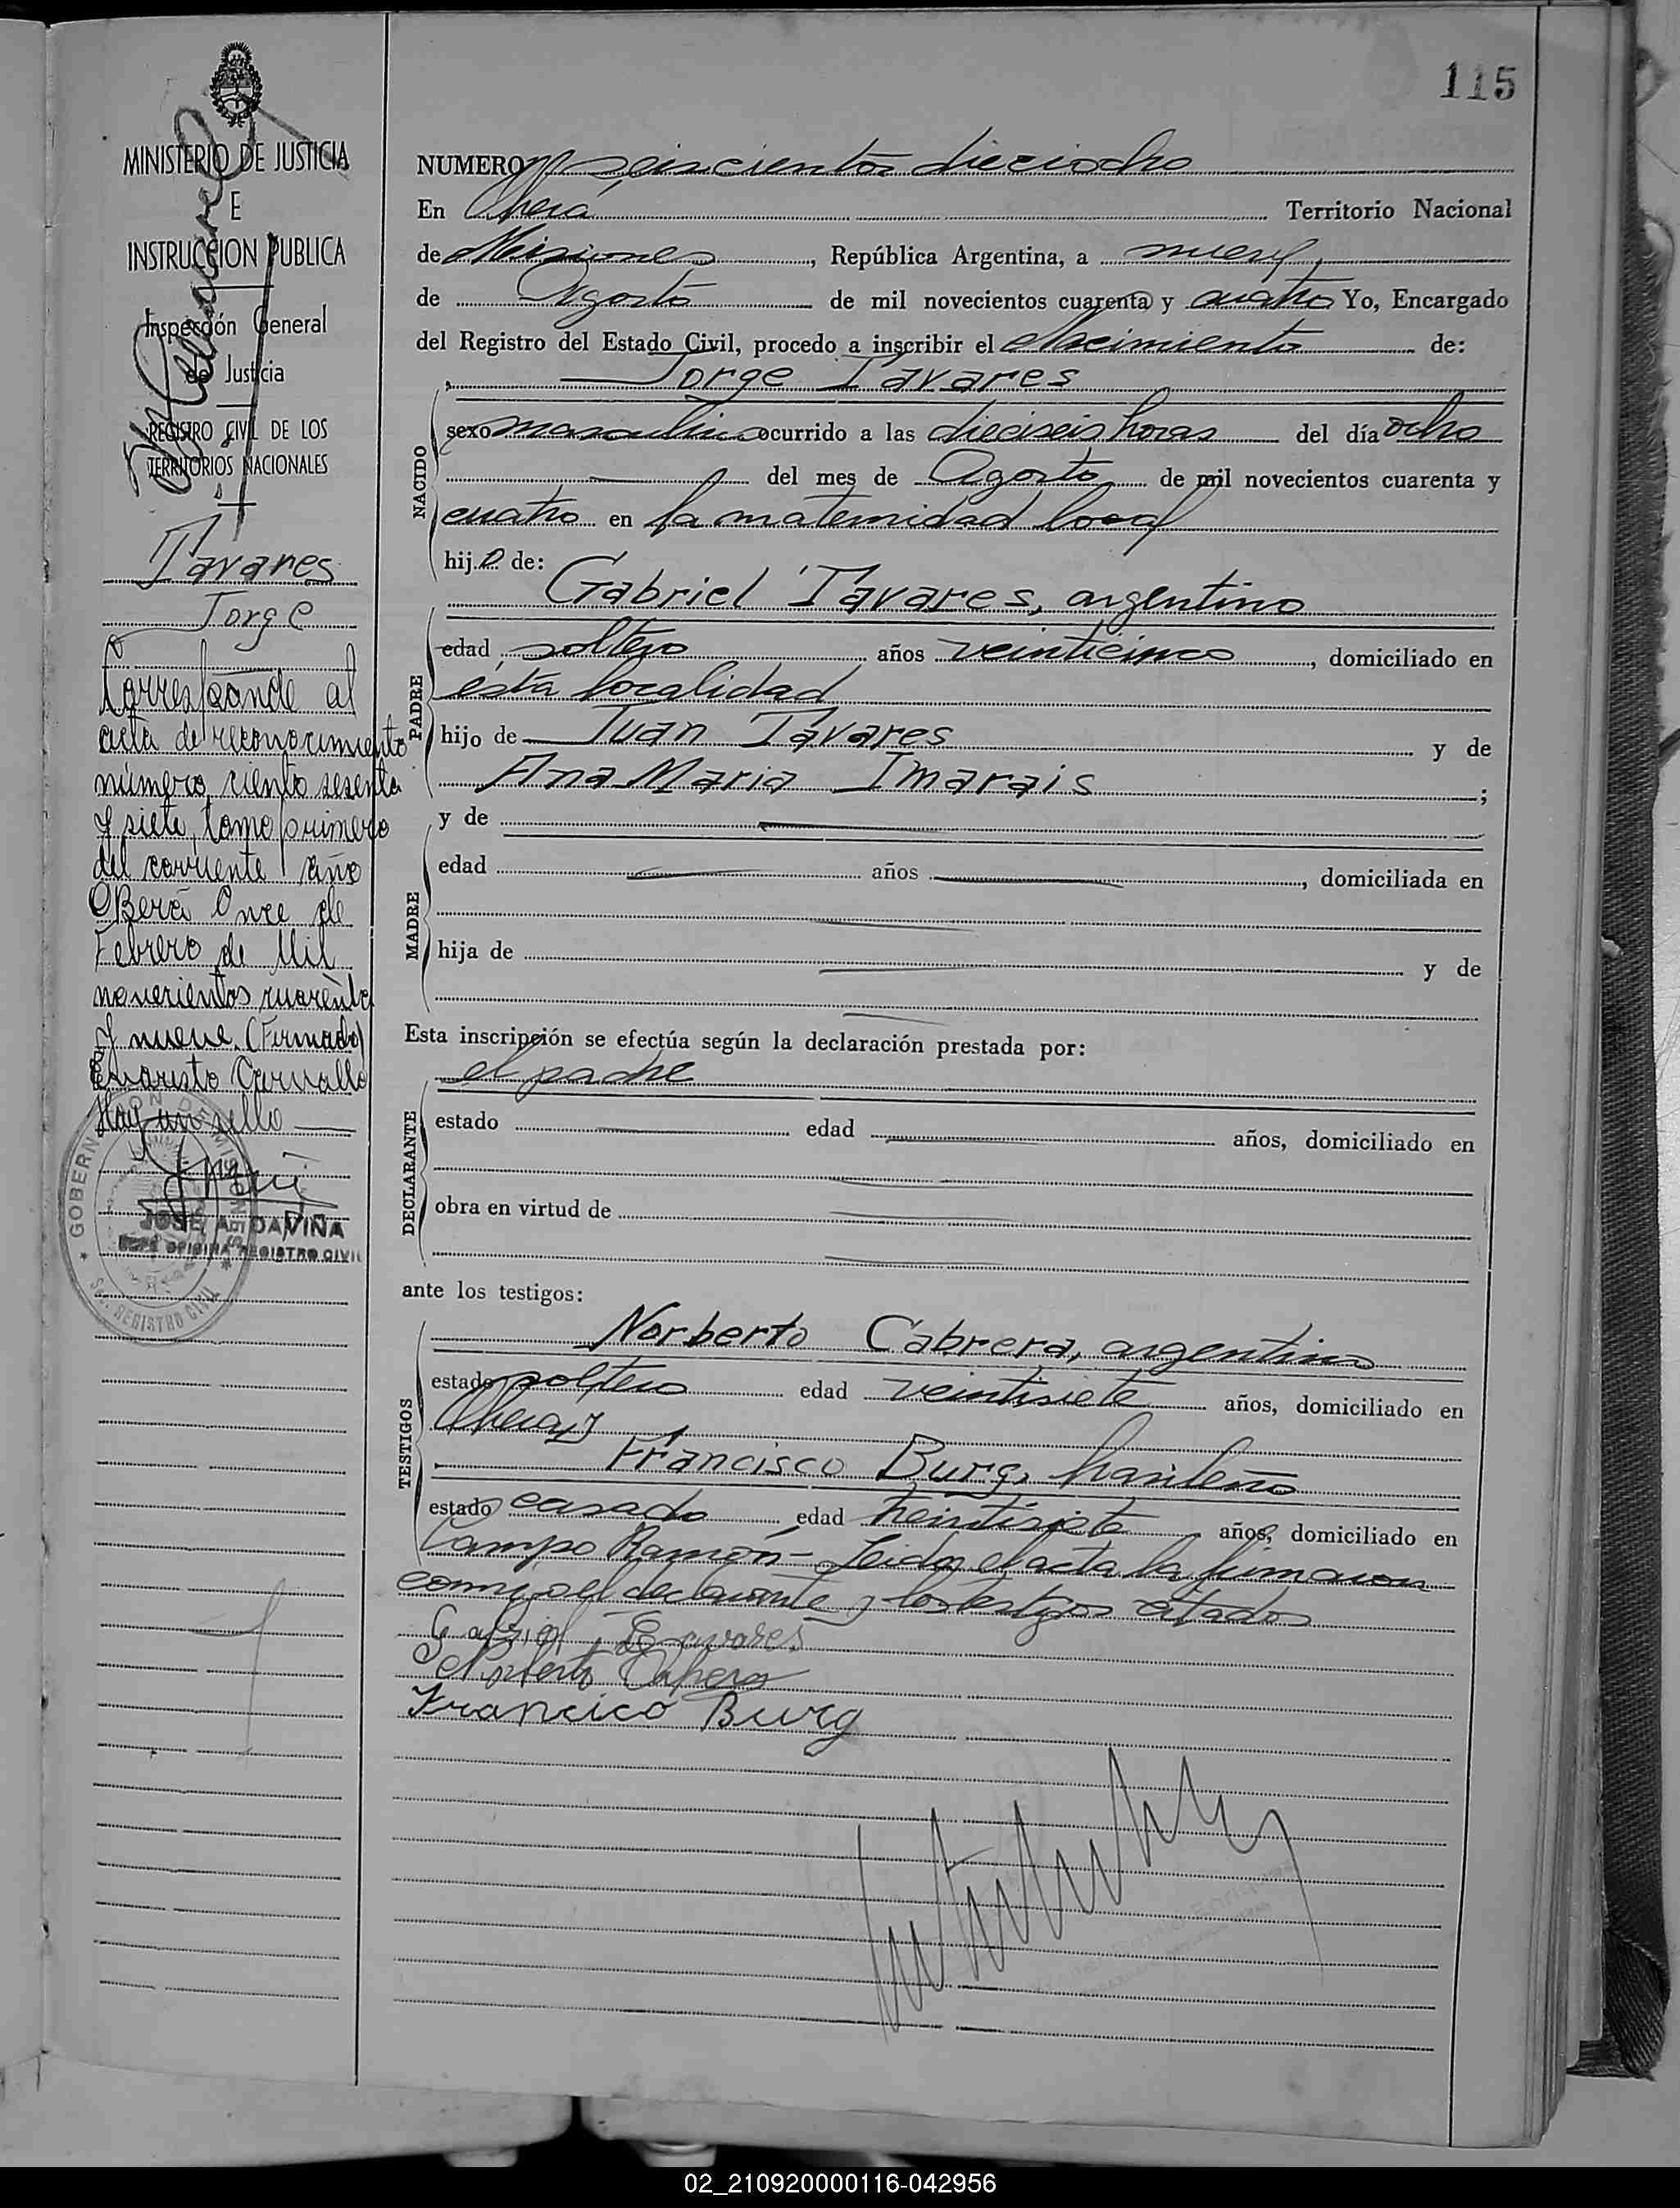 115
MINISTERIO DE JUSTICIA
E
INSTRUCCION PUBLICA
Inspección General
de Justicia
REGISTRO CIVIL DE LOS
TERRITORIOS NACIONALES
Tavares
Jorge
Corresponde al
acta de reconocimiento
número, ciento sesenta
y siete, tomo primero
del corriente año
Oberá Once de
Febrero de Mil
novecientos cuarenta
y nueve. (Firmado)
Evaristo Carvallo
Hay un sello
GOBERNACION DE MISIONES
REGISTRO CIVIL
JOSE A. DAVIÑA
JEFE OFICINA REGISTRO CIVIL
NUMERO seiscientos dieciocho
En Oberá Territorio Nacional
de Misiones, República Argentina, a nueve
de Agosto de mil novecientos cuarenta y cuatro Yo, Encargado
del Registro del Estado Civil, procedo a inscribir el Nacimiento de:
Jorge Tavares
NACIDO
sexo masculino ocurrido a las dieciseis horas del día ocho
del mes de Agosto de mil novecientos cuarenta y
cuatro en la maternidad local
hijo de:
PADRE
Gabriel Tavares, argentino
edad soltero años veinticinco, domiciliado en
esta localidad
hijo de Juan Tavares y de
Ana Maria Imarais;
y de
MADRE
edad años, domiciliada en
hija de y de
Esta inscripción se efectúa según la declaración prestada por:
el padre
DECLARANTE
estado edad años, domiciliado en
obra en virtud de
ante los testigos:
TESTIGOS
Norberto Cabrera, argentino
estado soltero edad veintisiete años, domiciliado en
Oberá y
Francisco Burg, brasileño
estado casado edad veintisiete años, domiciliado en
Campo Ramón - Leida el acta la firmaron
conmigo el declarante y los testigos citados
Gabriel Tavares
Norberto Cabrera
Francico Burg
02_210920000116-042956